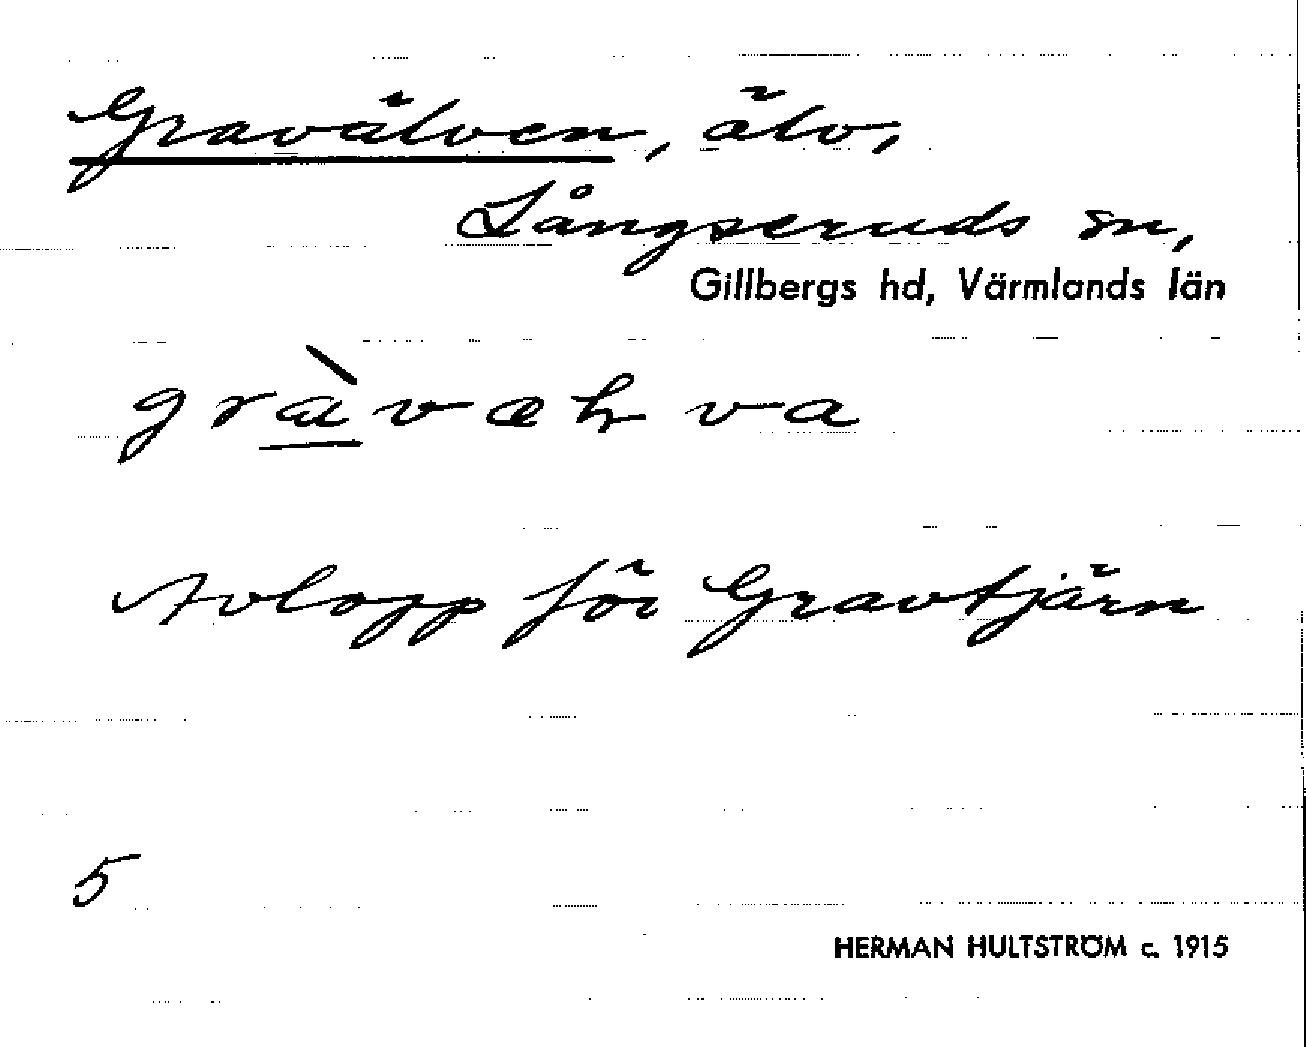 Gravälven, älv,
Långseruds sn,
Gillbergs hd, Värmlands län
gràvæɫva
Avlopp för Gravtjärn
5
HERMAN HULTSTRÖM c. 1915